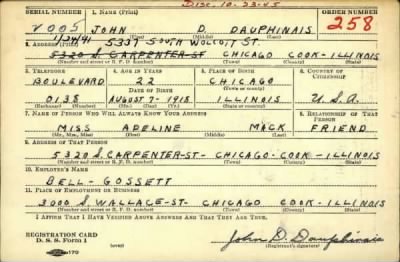 Disc. 10-23-45
SERIAL NUMBER 1. NAME (Print) ORDER NUMBER
V005 JOHN D. DAUPHINAIS 258
1/24/41 5337 SOUTH WOLCOTT ST.
2. ADDRESS (Print)
5320 S. CARPENTER-ST CHICAGO COOK-ILLINOIS
(Number and street or R. F. D. number) (Town) (County) (State)
3. TELEPHONE 4. AGE IN YEARS 5. PLACE OF BIRTH 6. COUNTRY OF CITIZENSHIP
BOULEVARD 22 CHICAGO
DATE OF BIRTH
0138 AUGUST 7-1918 ILLINOIS U.S.A.
7. NAME OF PERSON WHO WILL ALWAYS KNOW YOUR ADDRESS 8. RELATIONSHIP OF THAT PERSON
MISS ADELINE MACK FRIEND
(Mr., Mrs., Miss) (First) (Middle) (Last)
9. ADDRESS OF THAT PERSON
5320 S. CARPENTER-ST- CHICAGO-COOK-ILLINOIS
(Number and street or R. F. D. number) (Town) (County) (State)
10. EMPLOYER'S NAME
BELL-GOSSETT
11. PLACE OF EMPLOYMENT OR BUSINESS
3000 S. WALLACE-ST- CHICAGO COOK-ILLINOIS
(Number and street or R. F. D. number) (Town) (County) (State)
I AFFIRM THAT I HAVE VERIFIED ABOVE ANSWERS AND THAT THEY ARE TRUE.
REGISTRATION CARD
D. S. S. Form 1
John D. Dauphinais
(Registrant's signature)